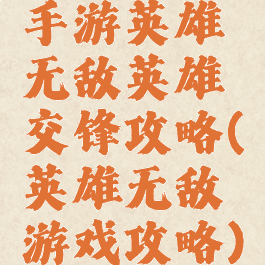 手游英雄
无敌英雄
交锋攻略(
英雄无敌
游戏攻略)